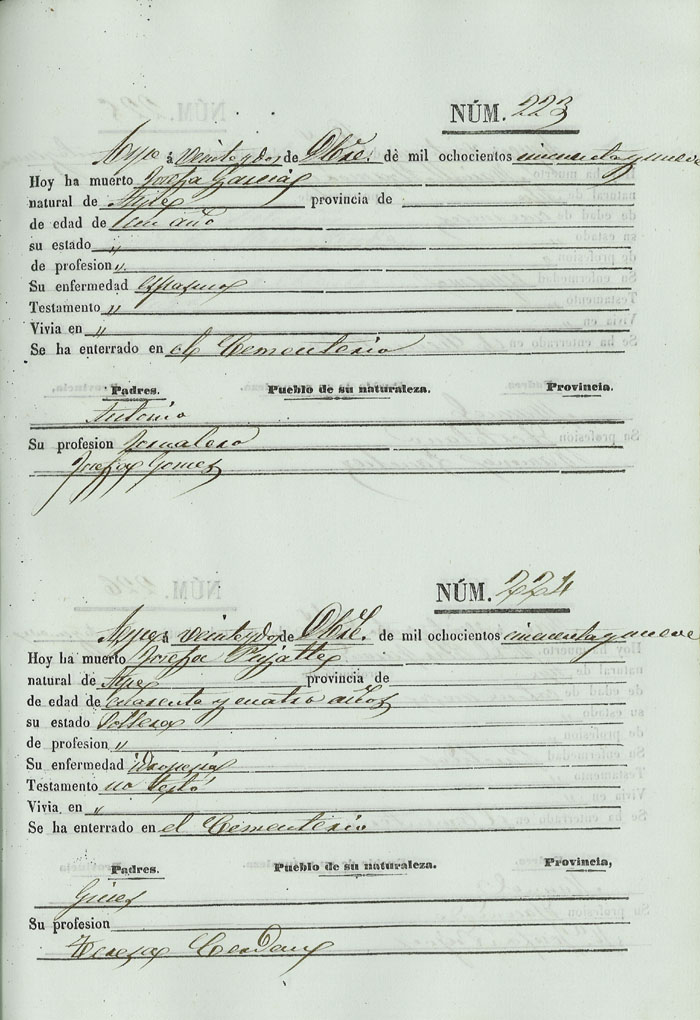 NÚM. 223
Aspe á veinte y dos de Obre. de mil ochocientos cincuenta y nueve
Hoy ha muerto Josefa Garcia
natural de Aspe provincia de
de edad de un año
su estado "
de profesion "
Su enfermedad espasmo
Testamento "
Vivia en "
Se ha enterrado en el Cementerio
Padres. Pueblo de su naturaleza. Provincia.
Antonio
Su profesion Jornalero
Josefa Gomez
NÚM. 224
Aspe á veinte y dos de Obre. de mil ochocientos cincuenta y nueve
Hoy ha muerto Josefa
natural de Aspe provincia de
de edad de cuarenta y cuatro años
su estado Soltera
de profesion "
Su enfermedad idropesia
Testamento no testó
Vivia en "
Se ha enterrado en el Cementerio
Padres. Pueblo de su naturaleza. Provincia,
Gines
Su profesion
Teresa Cerdan